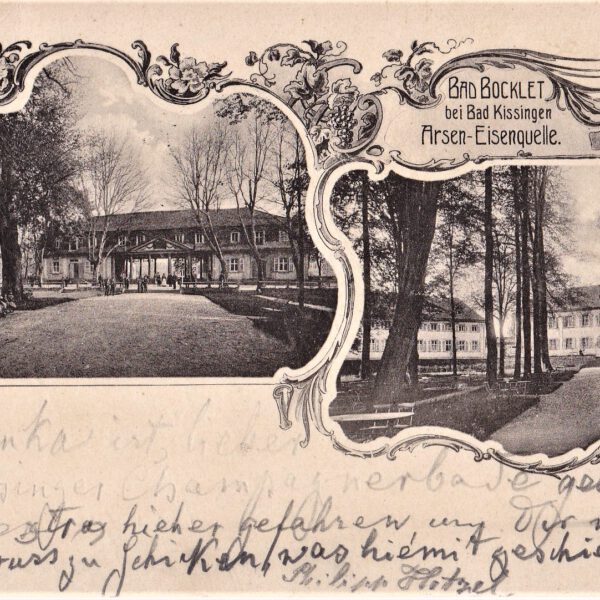 BAD BOCKLET
bei Bad Kissingen
Arsen-Eisenquelle.
ist lieber
singer Champagnerbade ge
extra hieher gefahren um Dir
uss zu schicken, was hiemit geschie
Philipp Hotzel.